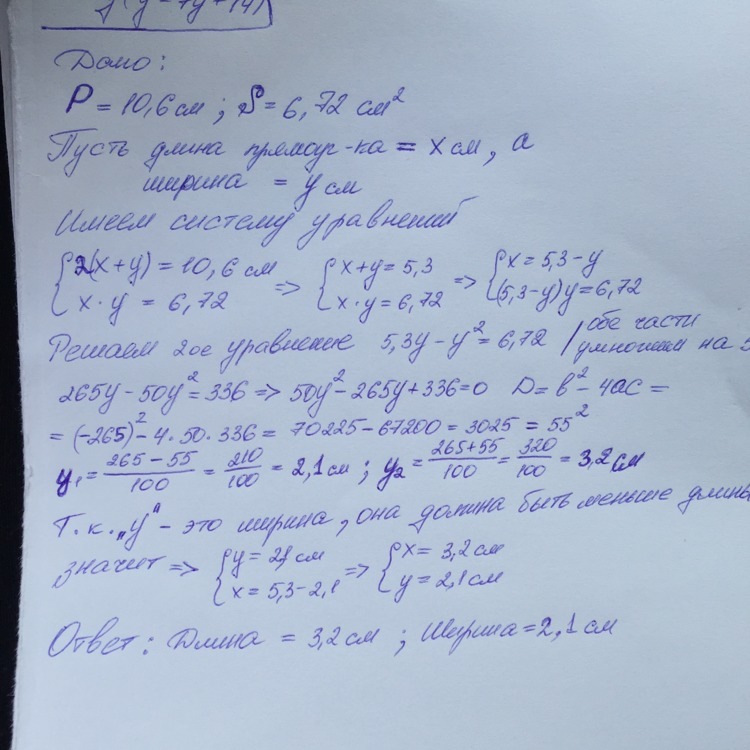 Дано:
P = 10,6 см ; S = 6,72 см²
Пусть длина прямоуг-ка = x см, а
ширина = y см
Имеем систему уравнений
{2(x+y) = 10,6 см {x+y = 5,3 {x = 5,3 - y
{x · y = 6,72 => {x · y = 6,72 => {(5,3-y)y = 6,72
Решаем 2ое уравнение 5,3y - y² = 6,72 / обе части
умножим на 5
265y - 50y² = 336 => 50y² - 265y + 336 = 0 D = b² - 4ac =
= (-265)² - 4 · 50 · 336 = 70225 - 67200 = 3025 = 55²
y₁ = (265 - 55)/100 = 210/100 = 2,1 см ; y₂ = (265 + 55)/100 = 320/100 = 3,2 см
Т.к. „y" - это ширина, она должна быть меньше длины
значит => {y = 2,1 см => {x = 3,2 см
{x = 5,3 - 2,1 {y = 2,1 см
Ответ: Длина = 3,2 см ; Ширина = 2,1 см